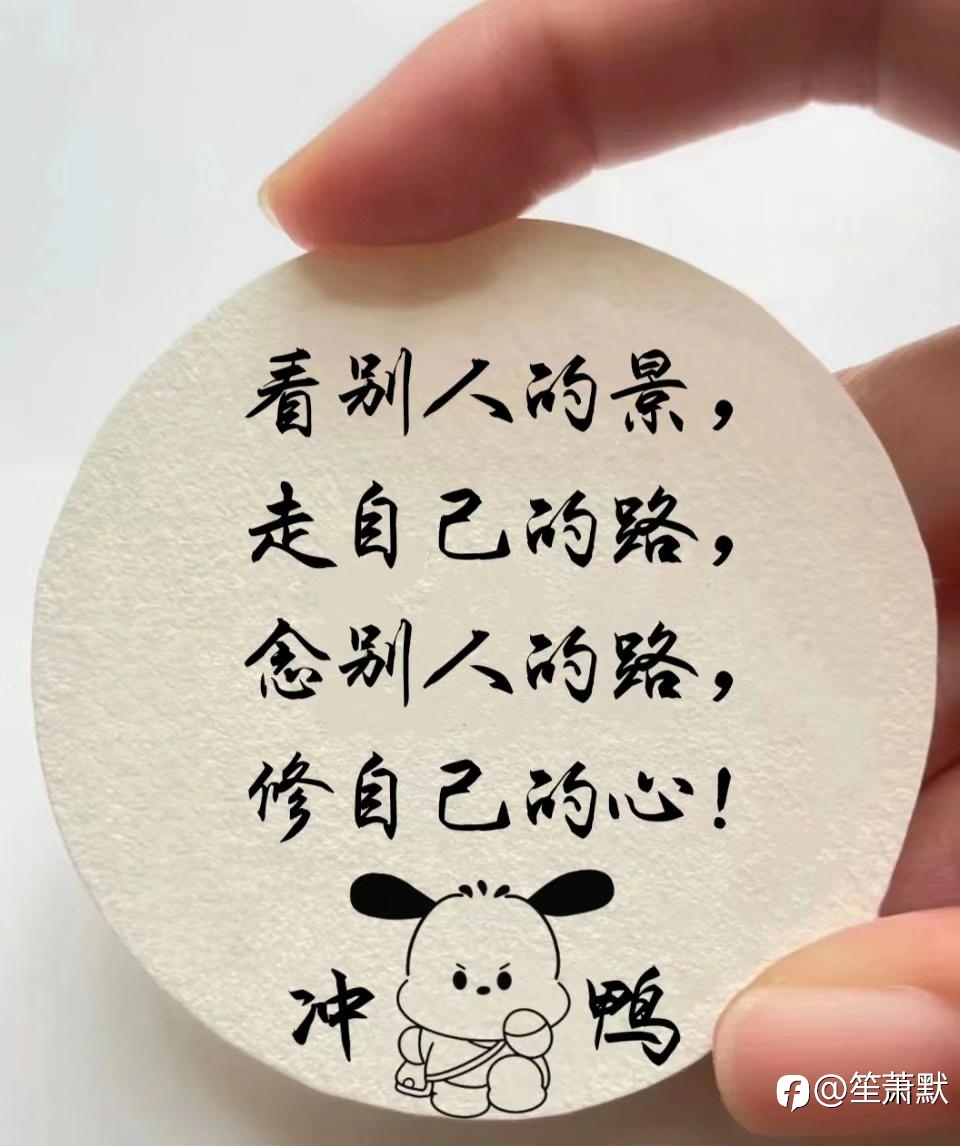 看别人的景，
走自己的路，
念别人的路，
修自己的心！
冲 鸭
@笙萧默